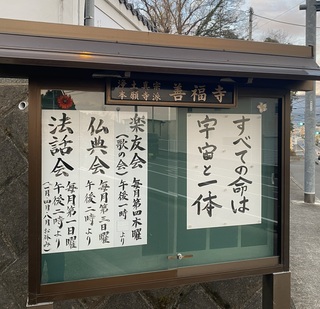 浄土真宗
本願寺派
善福寺
すべての命は
宇宙と一体
楽友会
(歌の会)
毎月第四木曜
午後一時より
仏典会
毎月第三日曜
午後二時より
法話会
毎月第一日曜
午後二時より
(一月四月八月お休み)